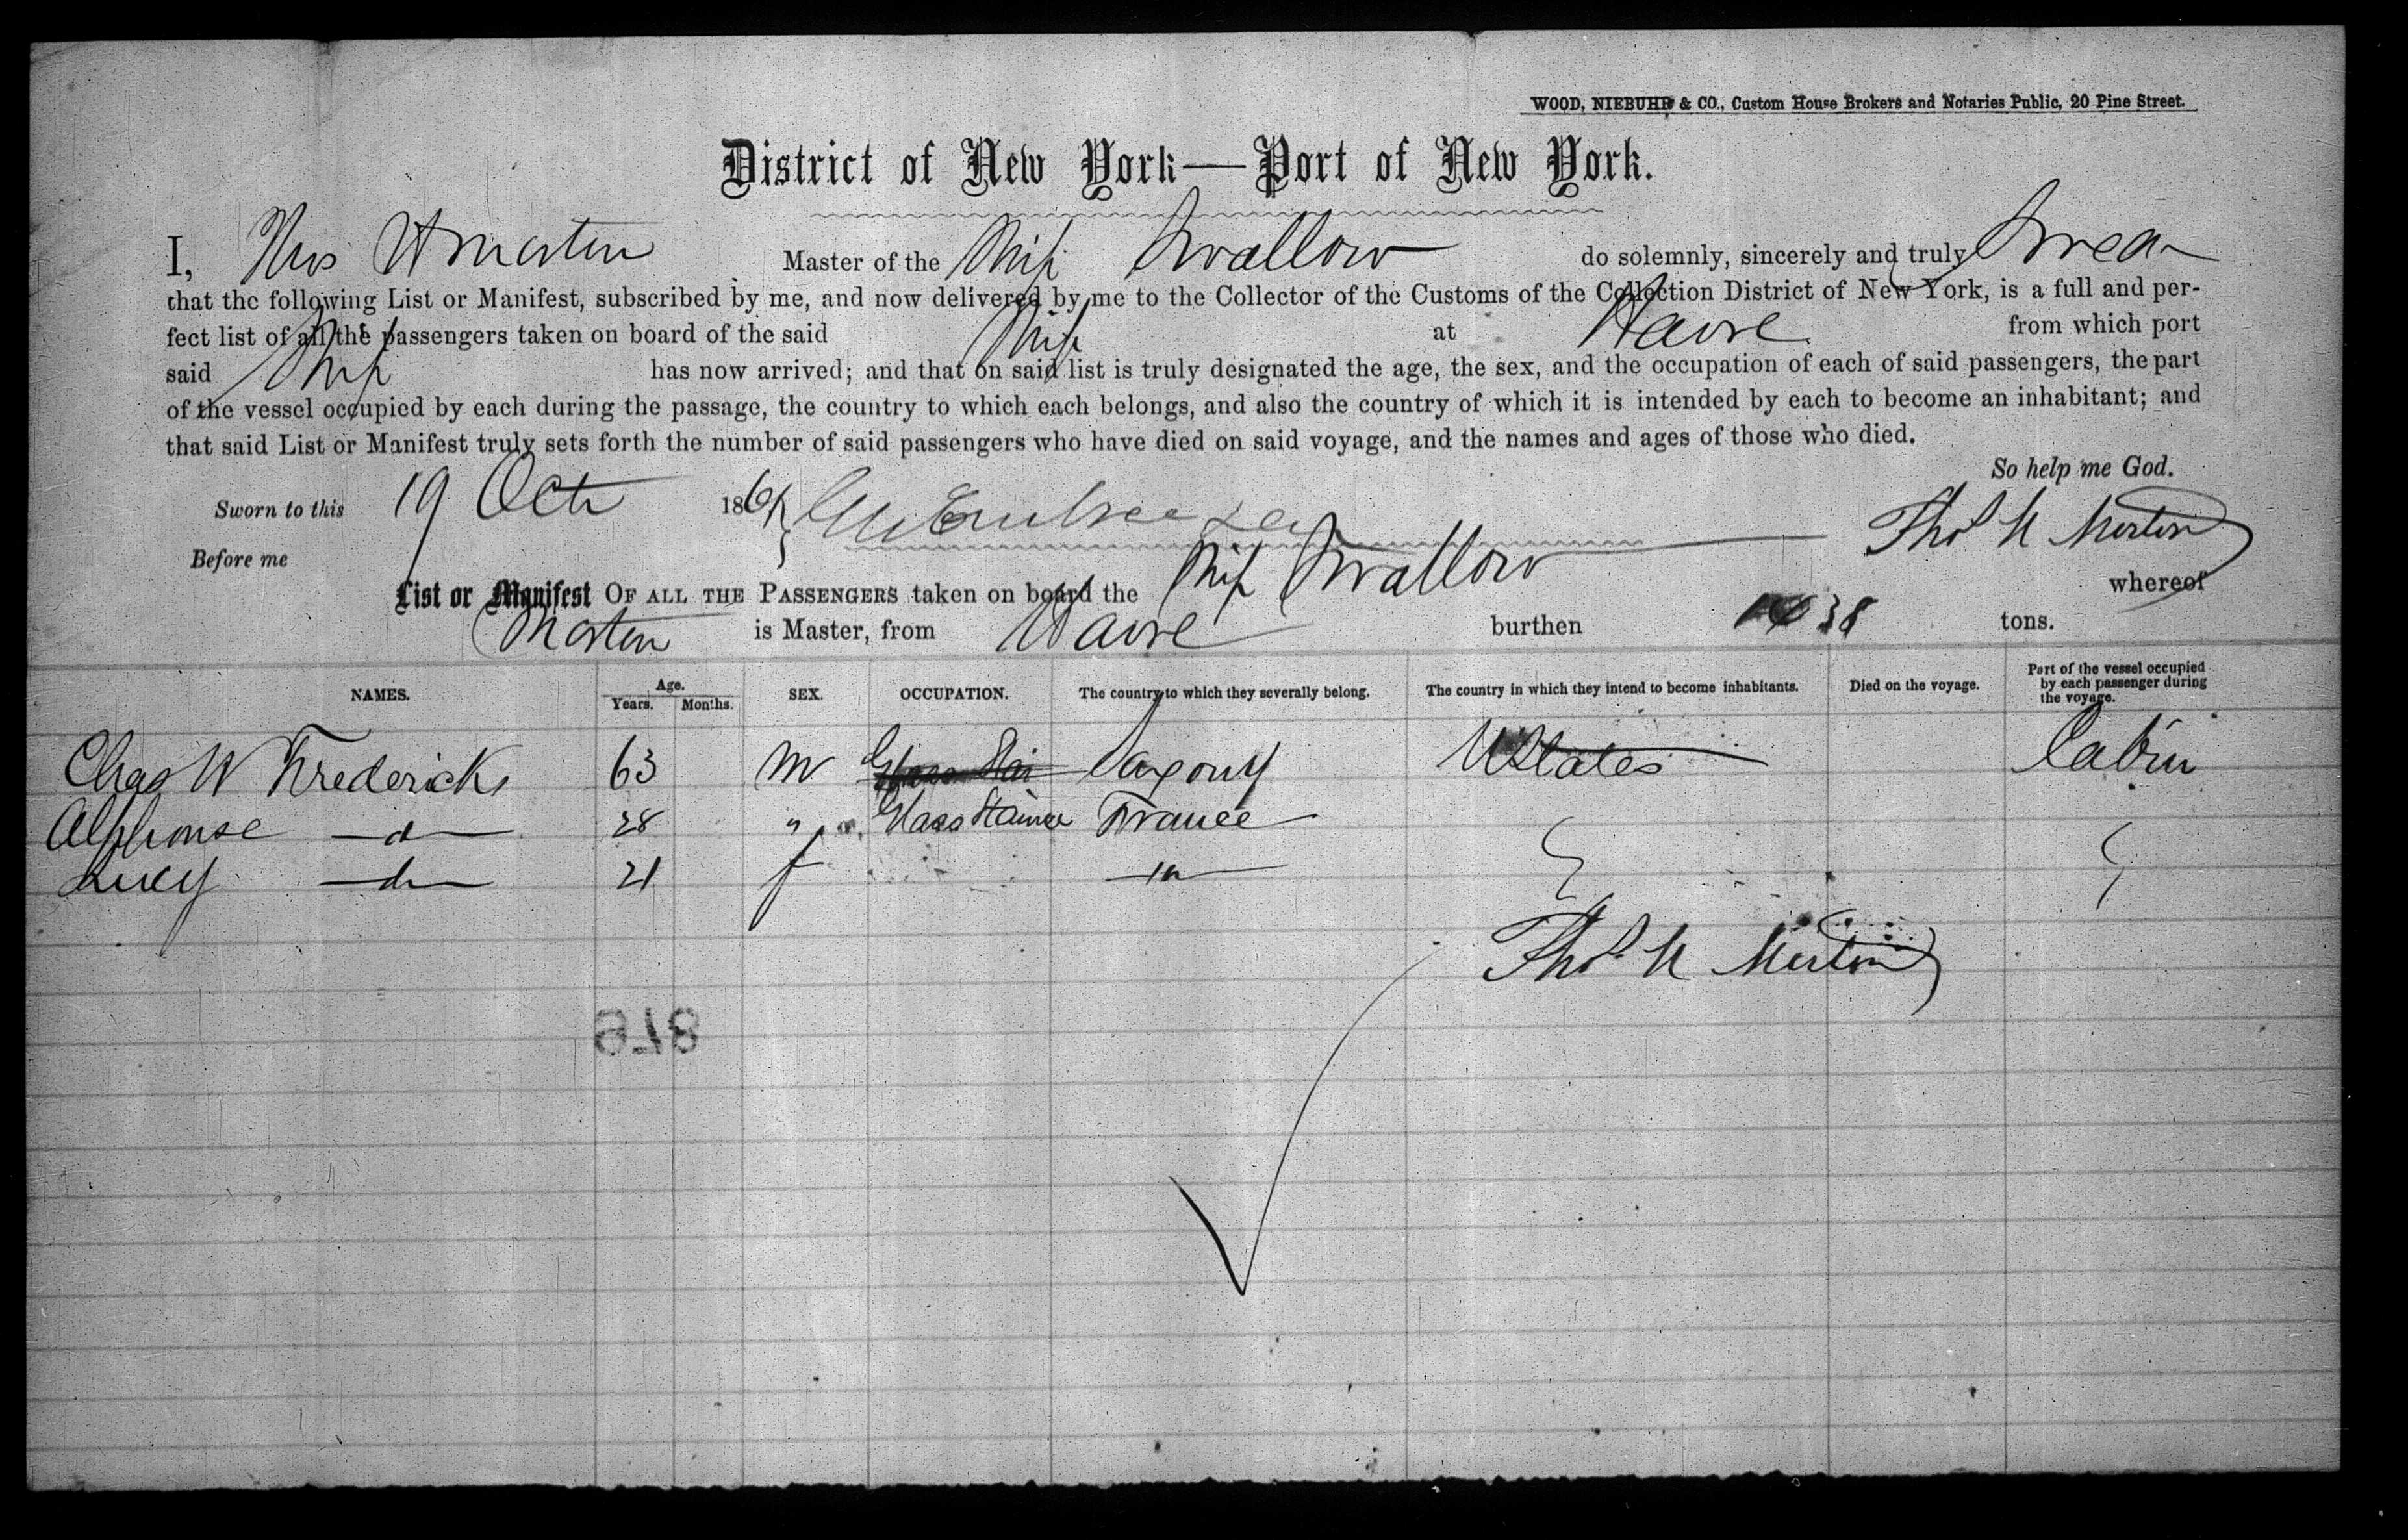 WOOD, NIEBUHR & CO., Custom House Brokers and Notaries Public, 20 Pine Street.
District of New York—Port of New York.
I, Thos H Morton Master of the Ship Swallow do solemnly, sincerely and truly Swear
that the following List or Manifest, subscribed by me, and now delivered by me to the Collector of the Customs of the Collection District of New York, is a full and per-
fect list of all the passengers taken on board of the said Ship at Havre from which port
said Ship has now arrived; and that on said list is truly designated the age, the sex, and the occupation of each of said passengers, the part
of the vessel occupied by each during the passage, the country to which each belongs, and also the country of which it is intended by each to become an inhabitant; and
that said List or Manifest truly sets forth the number of said passengers who have died on said voyage, and the names and ages of those who died.
So help me God.
Sworn to this 19 Oct 186
Before me
Thos H Morton
List or Manifest OF ALL THE PASSENGERS taken on board the Ship Swallow whereof
Morton is Master, from Havre burthen tons.
NAMES. Age. Years. Months. SEX. OCCUPATION. The country to which they severally belong. The country in which they intend to become inhabitants. Died on the voyage. Part of the vessel occupied by each passenger during the voyage.
Chas W Fredericks 63 M Saxony UStates Cabin
Alphonse —d— 28 " Glass Stainer France
Lucy —d— 21 f
Thos H Morton
876